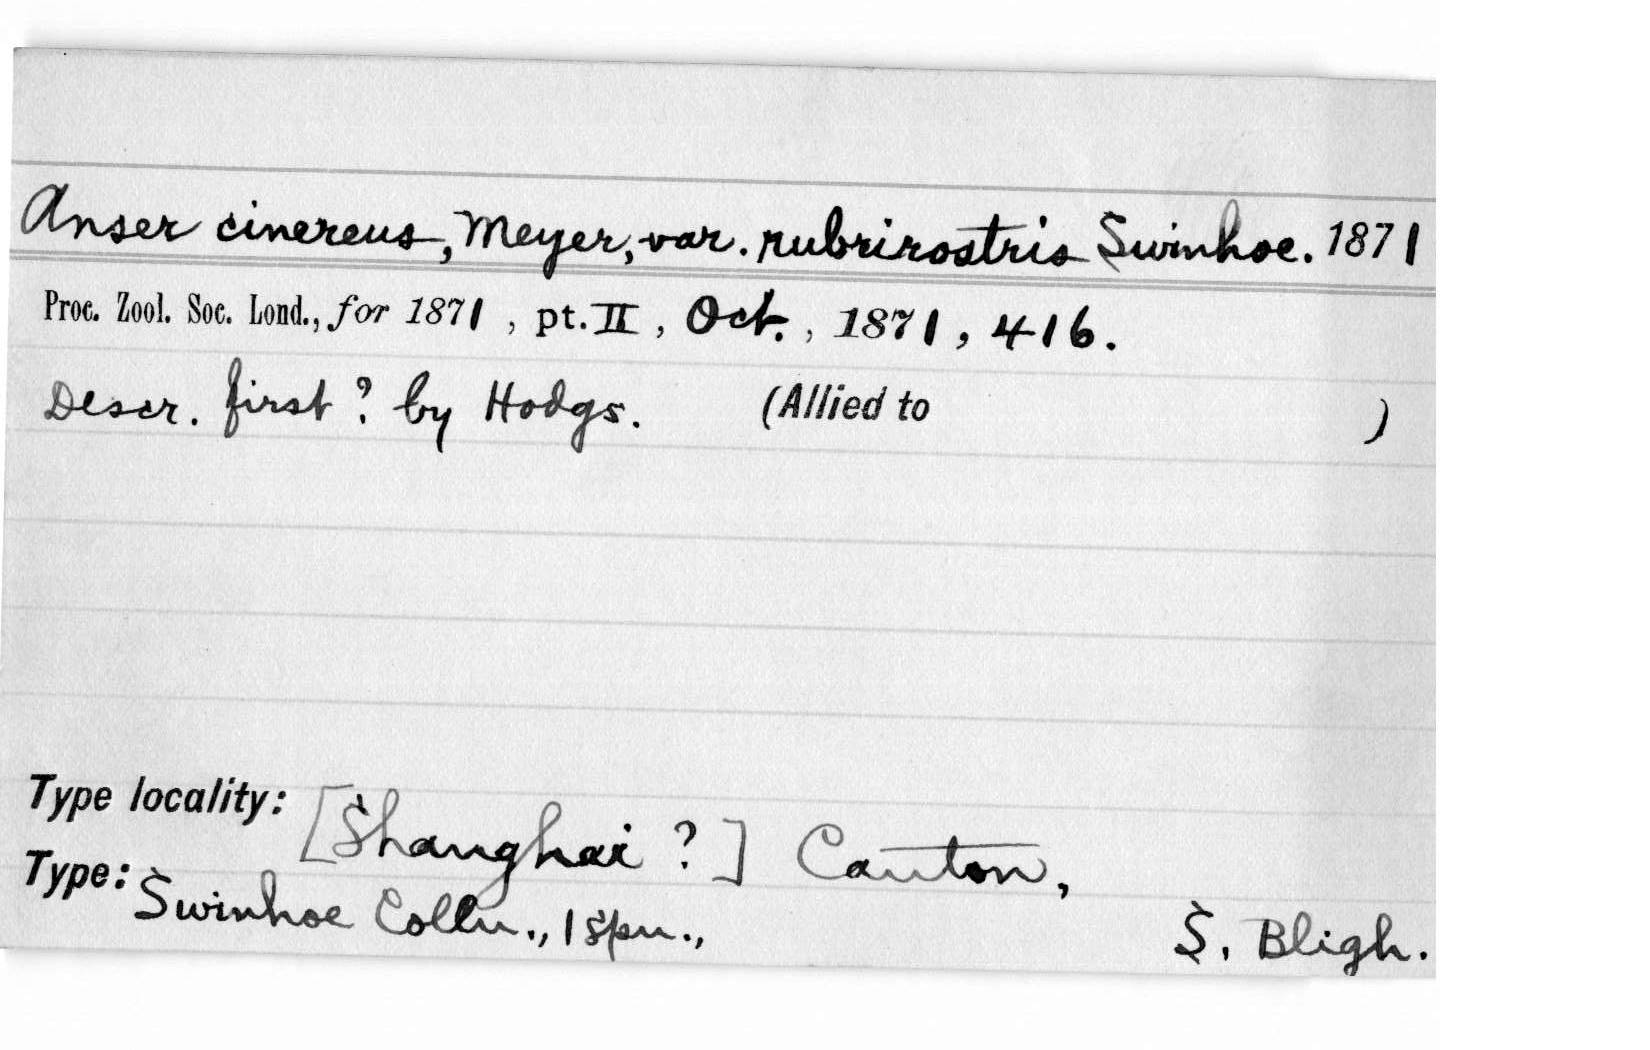 Anser cinereus, Meyer, var. rubrirostris Swinhoe. 1871
Proc. Zool. Soc. Lond., for 1871, pt. II, Oct., 1871, 416.
Descr. first? by Hodgs. (Allied to )
Type locality: [Shanghai ?] Canton,
Type: Swinhoe Colln., 1 spn., S. Bligh.